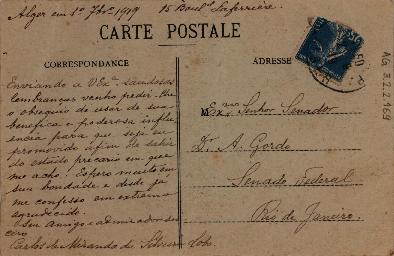 Alger em 1º Fbrº 1919 15 Boulº Laferrière.
CARTE POSTALE
CORRESPONDANCE
ADRESSE
Enviando a VExª saudosas
lembranças venho pedir-lhe
o obsequio de usar de sua
benefica e poderosa influ
encia para que seja eu
promovido afim de sahir
do estado precario em que
me acho. Espero muito em
sua bondade e desde já
me confesso em extremo
agradecido.
Seu amigo e admirador
Carlos de Miranda da
M Exmo Senhor Senador
Dr. A. Gordo
Senado Federal
Rio de Janeiro.
AG 3.2.2.169